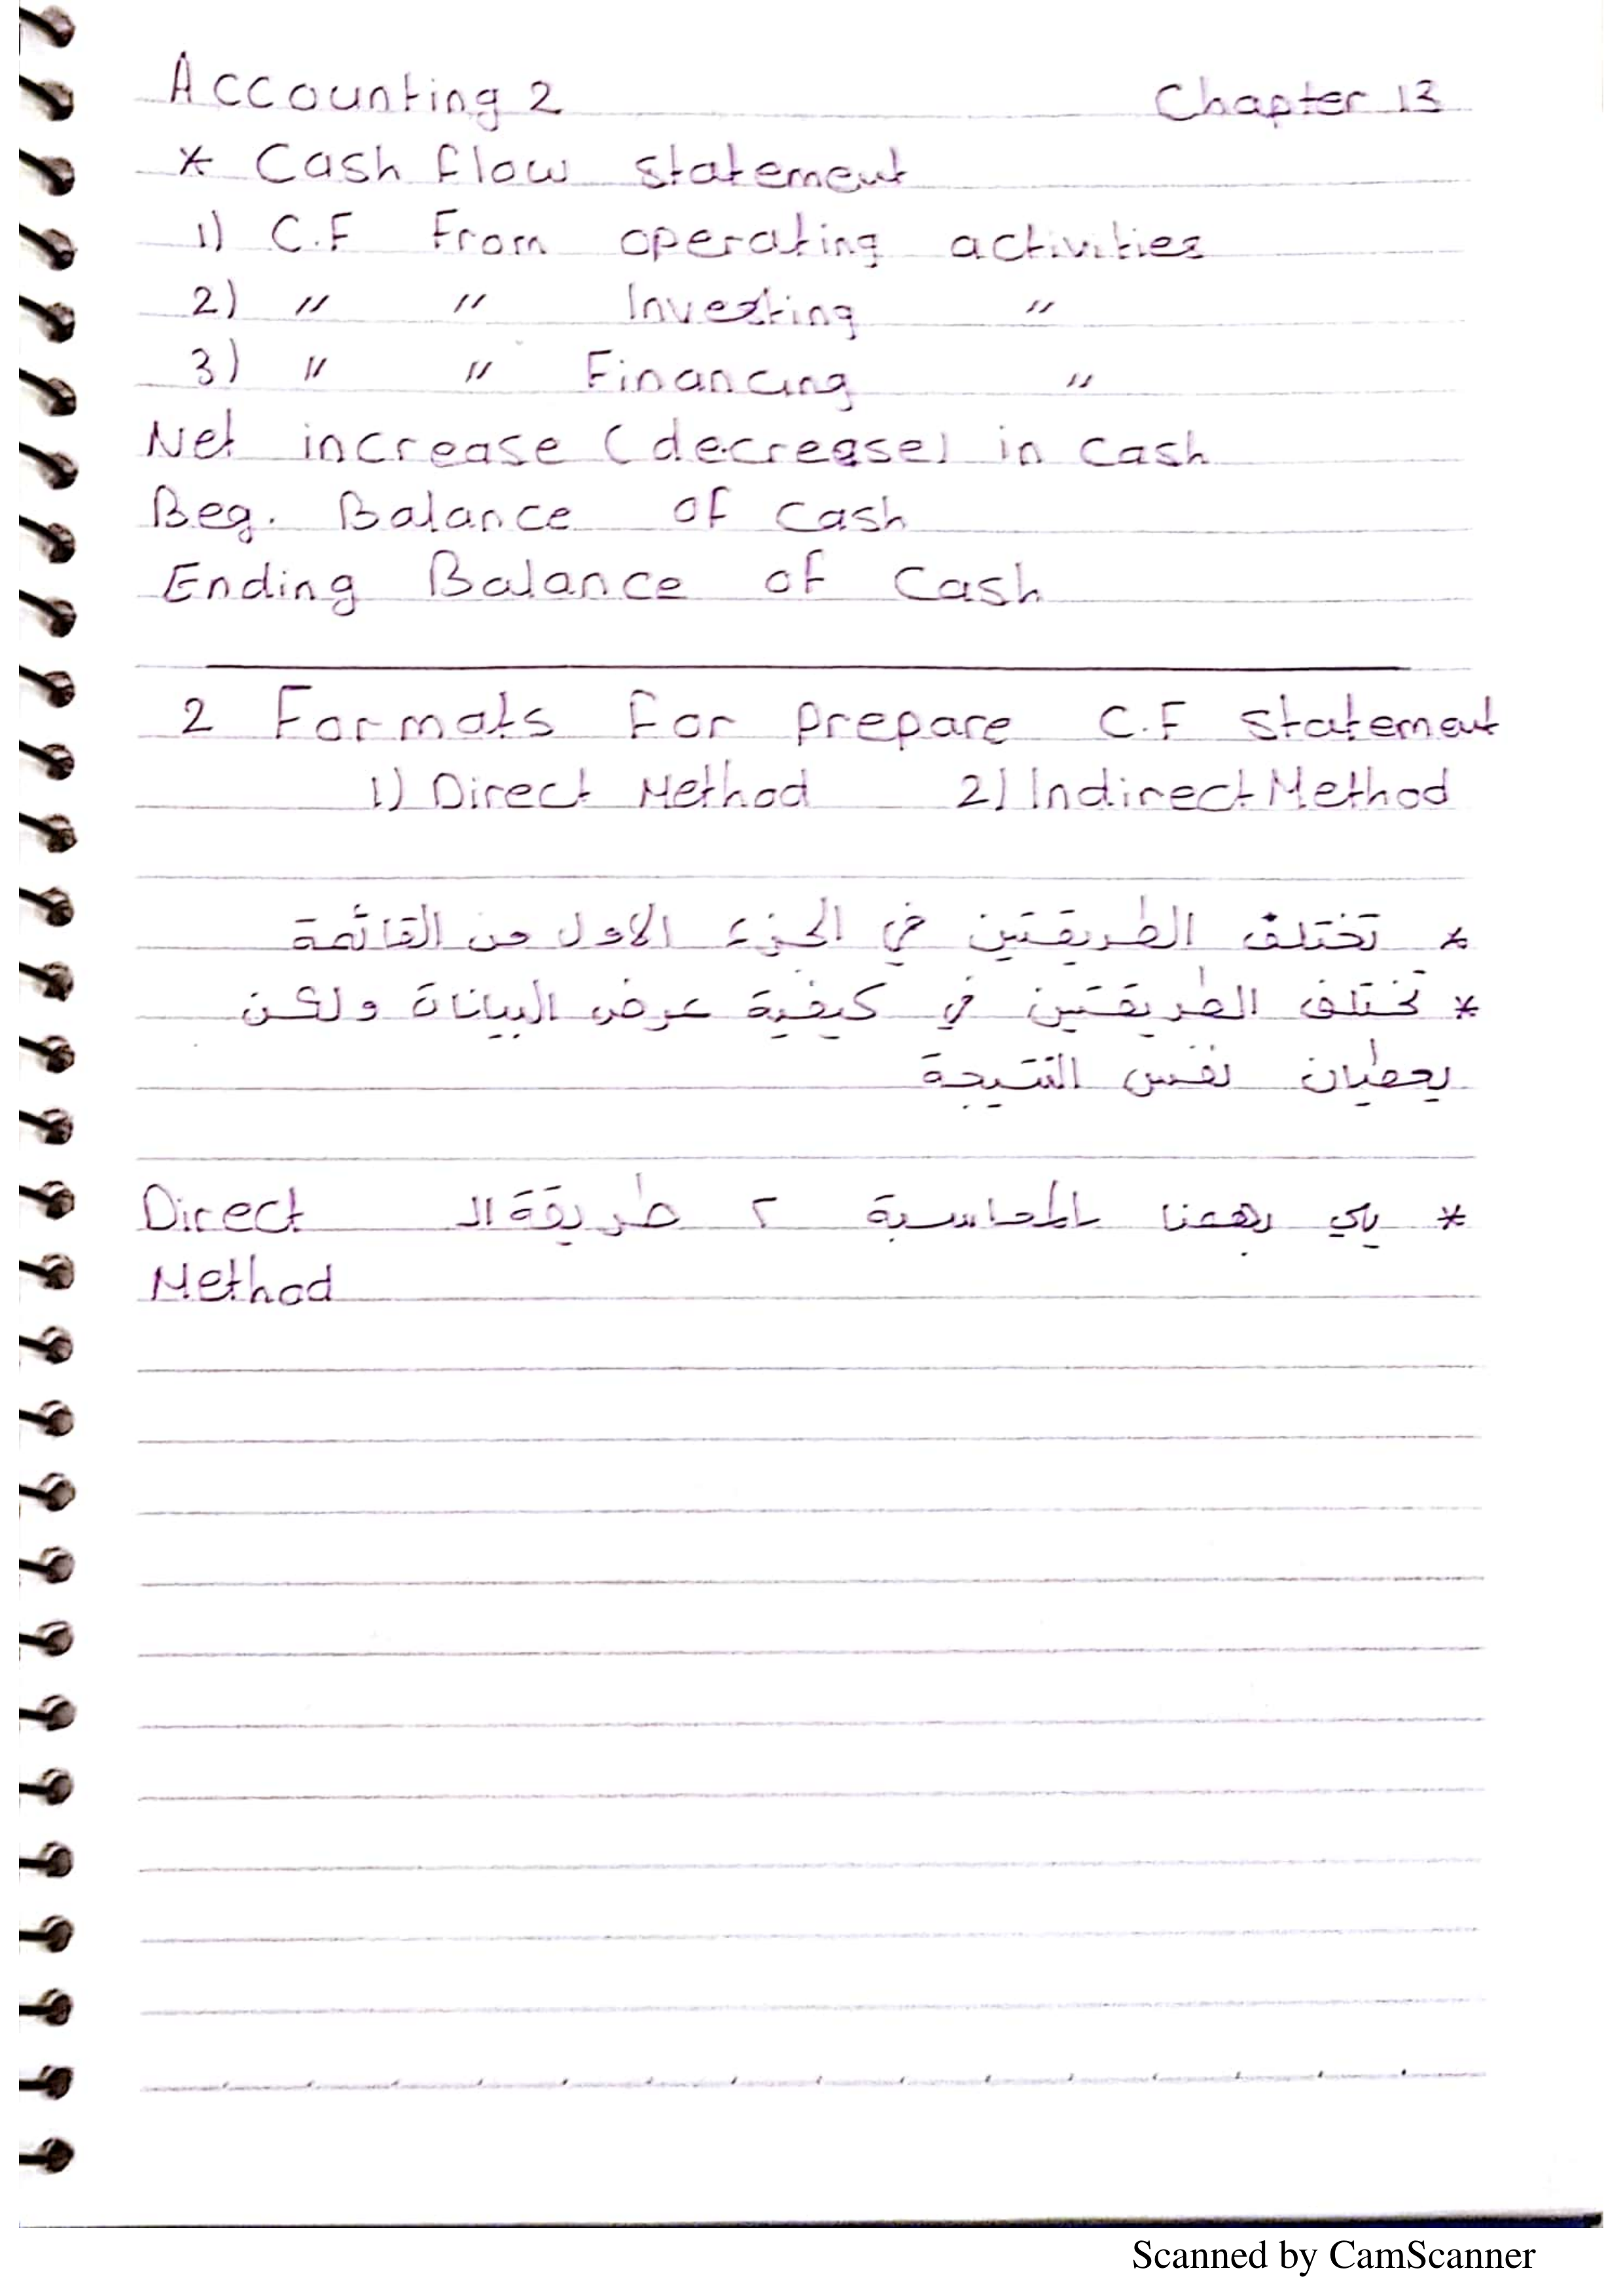 Accounting 2 Chapter 13
* Cash flow statement
1) C.F From operating activities
2) " " Investing "
3) " " Financing "
Net increase (decrease) in cash
Beg. Balance of cash
Ending Balance of cash
2 Formats for prepare C.F statement
1) Direct Method 2) Indirect Method
* تختلف الطريقتين في الجزء الاول من القائمة
* تختلف الطريقتين في كيفية عرض البيانات ولكن
يعطيان نفس النتيجة
* يلي بهمنا بالمحاسبة ٢ طريقة ال Direct
Method
Scanned by CamScanner